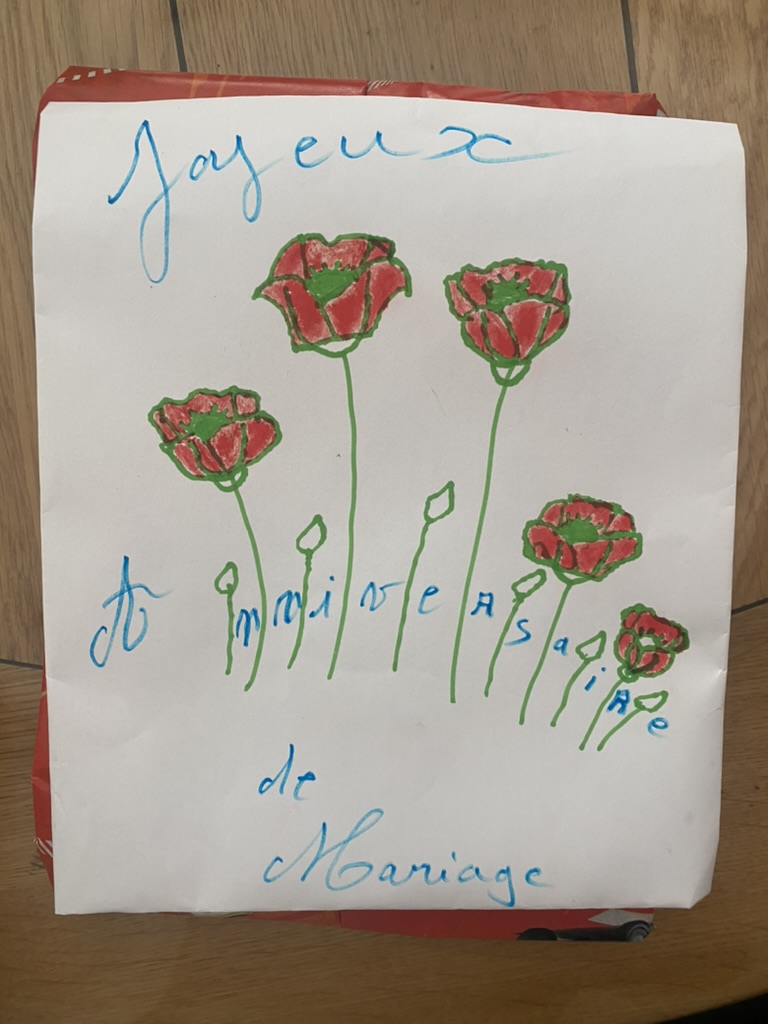 Joyeux
Anniversaire
de
Mariage